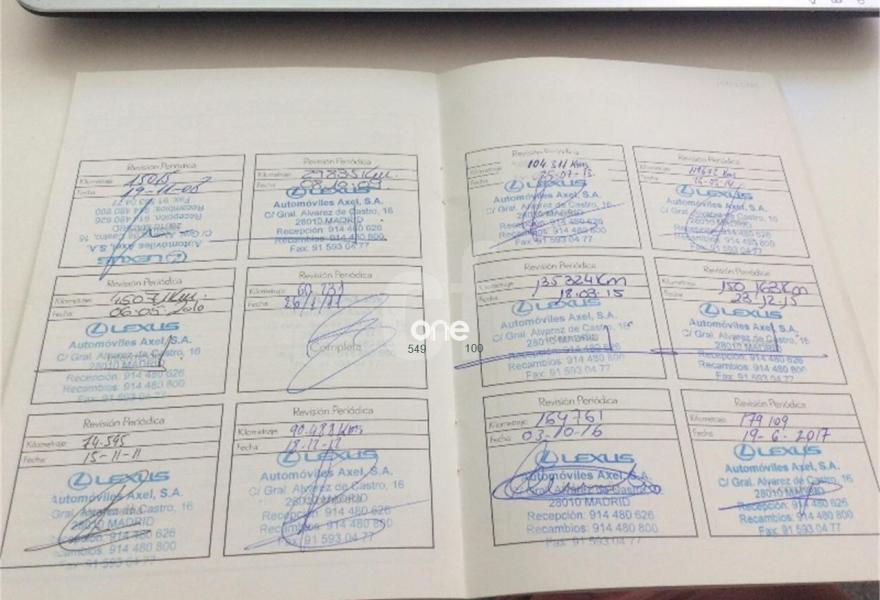 Revisión Periódica
Kilometraje: 15015
Fecha: 19-11-08
Fax: 91 593 04 77
Recambios: 914 480 800
Recepción: 914 480 626
28010 MADRID
C/ Gral. Alvarez de Castro, 16
Automóviles Axel, S.A.
LEXUS
Revisión Periódica
Kilometraje: 29835 Km.
Fecha:
LEXUS
Automóviles Axel, S.A.
C/ Gral. Alvarez de Castro, 16
28010 MADRID
Recepción: 914 480 626
Recambios: 914 480 800
Fax: 91 593 04 77
Revisión Periódica
Kilometraje: 45031 Km.
Fecha: 06-05-2010
LEXUS
Automóviles Axel, S.A.
C/ Gral. Alvarez de Castro, 16
28010 MADRID
Recepción: 914 480 626
Recambios: 914 480 800
Revisión Periódica
Kilometraje: 60.731
Fecha: 26/1/11
Completa
Revisión Periódica
Kilometraje: 74.595
Fecha: 15-11-11
LEXUS
Automóviles Axel, S.A.
C/ Gral. Alvarez de Castro, 16
28010 MADRID
Recepción: 914 480 626
Recambios: 914 480 800
Fax: 91 593 04 77
Revisión Periódica
Kilometraje: 90.483 Kms
Fecha: 18-12-12
LEXUS
Automóviles Axel, S.A.
C/ Gral. Alvarez de Castro, 16
28010 MADRID
Recepción: 914 480 626
Recambios: 914 480 800
Fax: 91 593 04 77
Revisión Periódica
Kilometraje: 104.311 Kms
Fecha: 25-07-13
LEXUS
Automóviles Axel, S.A.
C/ Gral. Alvarez de Castro, 16
28010 MADRID
Recepción: 914 480 626
Recambios: 914 480 800
Fax: 91 593 04 77
Revisión Periódica
Kilometraje:
Fecha:
LEXUS
Automóviles Axel, S.A.
C/ Gral. Alvarez de Castro, 16
28010 MADRID
Recepción: 914 480 626
Recambios: 914 480 800
Fax: 91 593 04 77
Revisión Periódica
Kilometraje: 135324 Km
Fecha: 18-03-15
LEXUS
Automóviles Axel, S.A.
C/ Gral. Alvarez de Castro, 16
28010 MADRID
Recepción: 914 480 626
Recambios: 914 480 800
Fax: 91 593 04 77
Revisión Periódica
Kilometraje: 150.163 Km
Fecha: 23-12-15
LEXUS
Automóviles Axel, S.A.
C/ Gral. Alvarez de Castro, 16
28010 MADRID
Recepción: 914 480 626
Recambios: 914 480 800
Fax: 91 593 04 77
Revisión Periódica
Kilometraje: 164761
Fecha: 03-10-16
LEXUS
Automóviles Axel, S.A.
C/ Gral. Alvarez de Castro, 16
28010 MADRID
Recepción: 914 480 626
Recambios: 914 480 800
Fax: 91 593 04 77
Revisión Periódica
Kilometraje: 179109
Fecha: 19-6-2017
LEXUS
Automóviles Axel, S.A.
C/ Gral. Alvarez de Castro, 16
28010 MADRID
Recepción: 914 480 626
Recambios: 914 480 800
Fax: 91 593 04 77
one
549 100